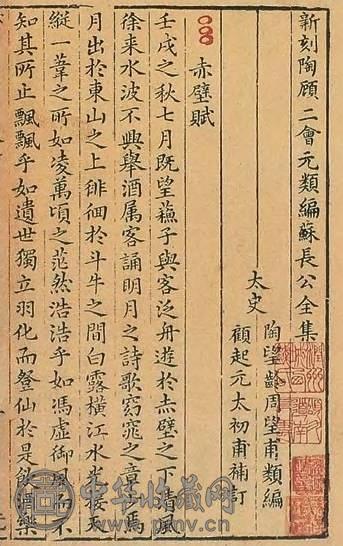 新刻陶顧二會元類編蘇長公全集
陶望齡周望甫類編
太史
顧起元太初甫補訂
赤壁賦
壬戌之秋七月既望蘓子與客泛舟遊於赤壁之下清風
徐来水波不興舉酒属客誦明月之詩歌窈窕之章少焉
月出於東山之上徘徊於斗牛之間白露橫江水光接天
縱一葦之所如凌萬頃之茫然浩浩乎如馮虚御風而不
知其所止飄飄乎如遺世獨立羽化而登仙於是飲酒樂
中华收藏网
www.pmv.cn